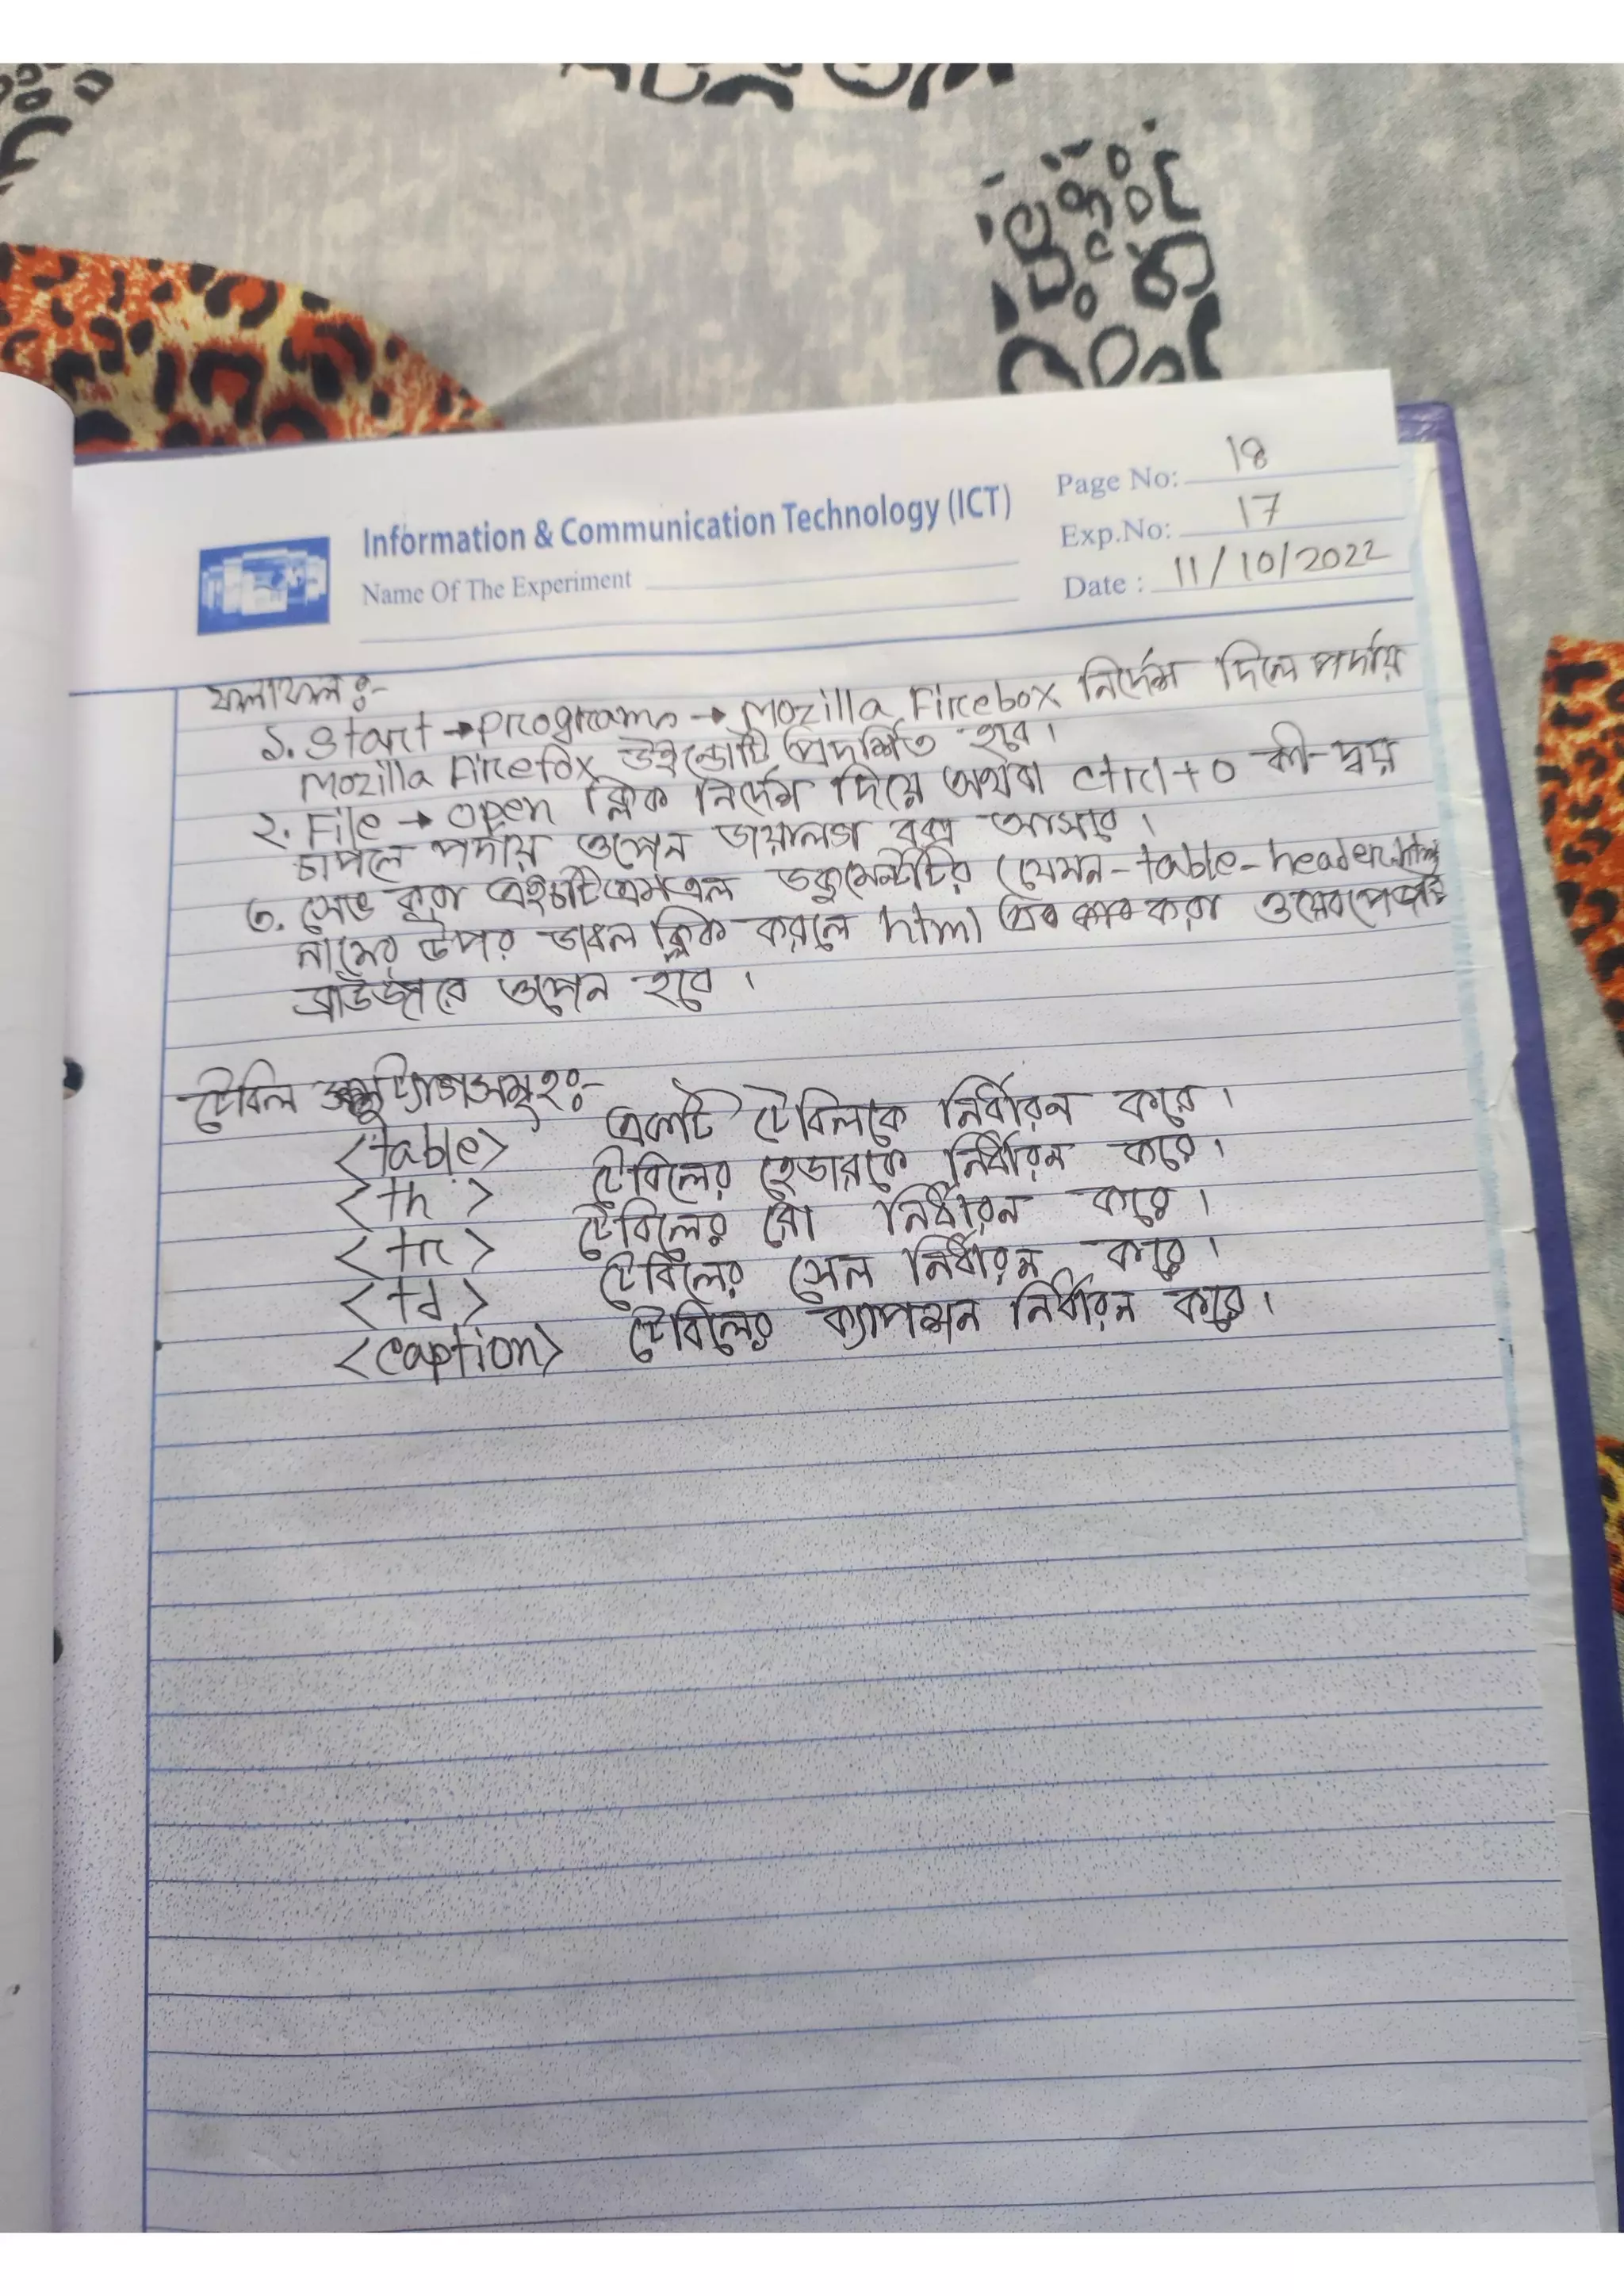 Information & Communication Technology (ICT)
Name Of The Experiment
Page No: 18
Exp.No: 17
Date : 11/10/2022
ফলাফল:-
১. Start → programs → Mozilla Firebox নির্দেশ দিলে পর্দায়
Mozilla Firefox উইন্ডোটি প্রদর্শিত হবে।
২. File → open ক্লিক নির্দেশ দিয়ে অথবা ctrl + o কী-দ্বয়
চাপলে পর্দায় ওপেন ডায়ালগ বক্স আসবে।
৩. সেভ করা এইচটিএমএল ডকুমেন্টটির (যেমন-table-header.html
নামের উপর ডাবল ক্লিক করলে html করা ওয়েবপেজটি
ব্রাউজারে ওপেন হবে।
টেবিল ট্যাগসমূহ:-
<table> একটি টেবিলকে নির্ধারন করে।
<th> টেবিলের হেডারকে নির্ধারন করে।
<tr> টেবিলের রো নির্ধারন করে।
<td> টেবিলের সেল নির্ধারন করে।
<caption> টেবিলের ক্যাপশন নির্ধারন করে।